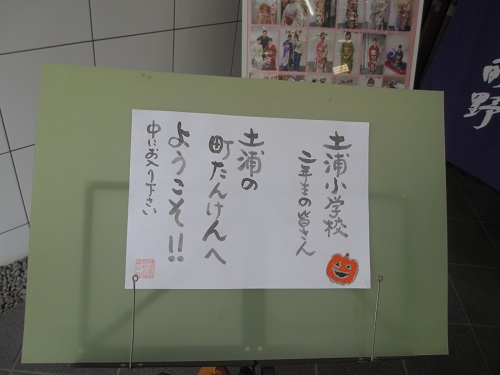 土浦小学校
二年生の皆さん
土浦の
町たんけんへ
ようこそ!!
中にお入り下さい